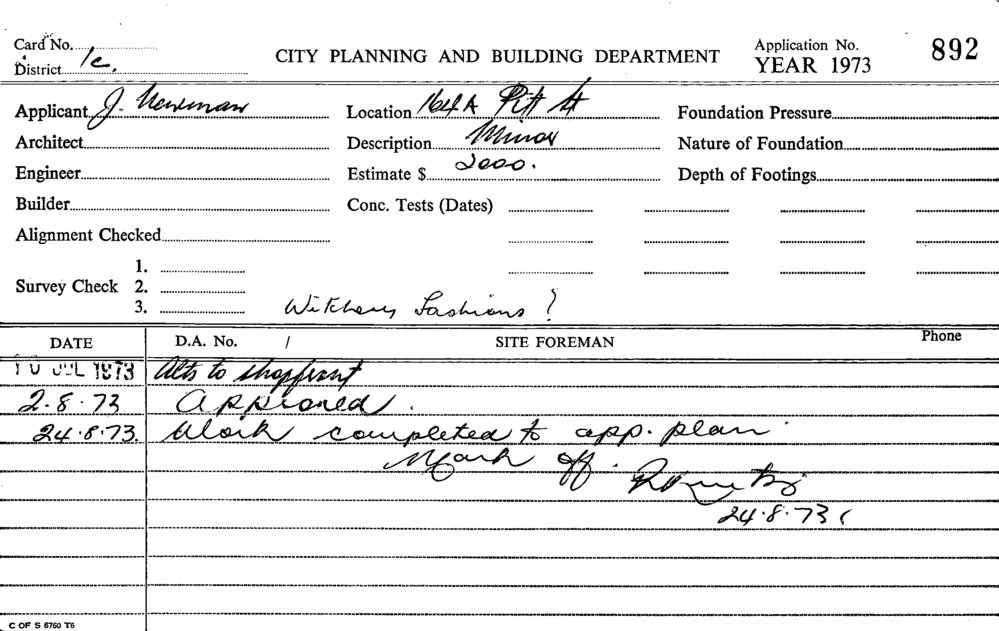 Card No.
District 1c.
CITY PLANNING AND BUILDING DEPARTMENT
Application No. 892
YEAR 1973
Applicant J. Newman
Location 164A Pitt St
Foundation Pressure
Architect
Description Minor
Nature of Foundation
Engineer
Estimate $ 2000.
Depth of Footings
Builder
Conc. Tests (Dates)
Alignment Checked
1.
Survey Check 2.
3.
Witchery Fashions ?
DATE D.A. No. / SITE FOREMAN Phone
10 JUL 1973 Alts to shopfront
2.8.73 Approved.
24.8.73. Work completed to app. plan
Mark off.
24.8.73
C OF S 6760 T6